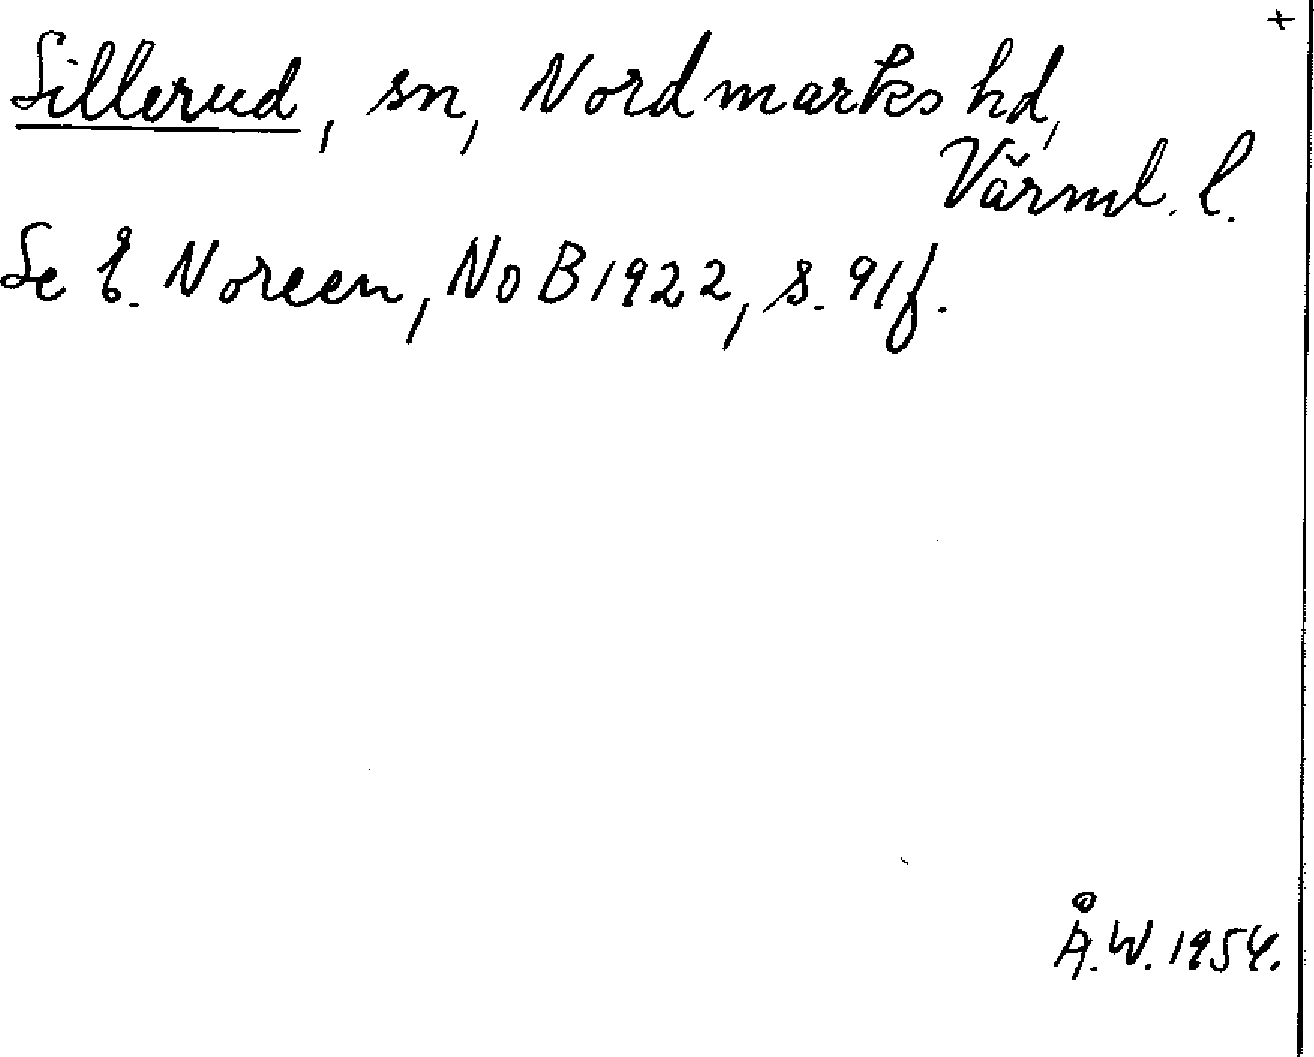 +
Sillerud, sn, Nordmarks hd,
Värml. l.
Se E. Noreen, NoB 1922, s. 91f.
Å.W. 1954.